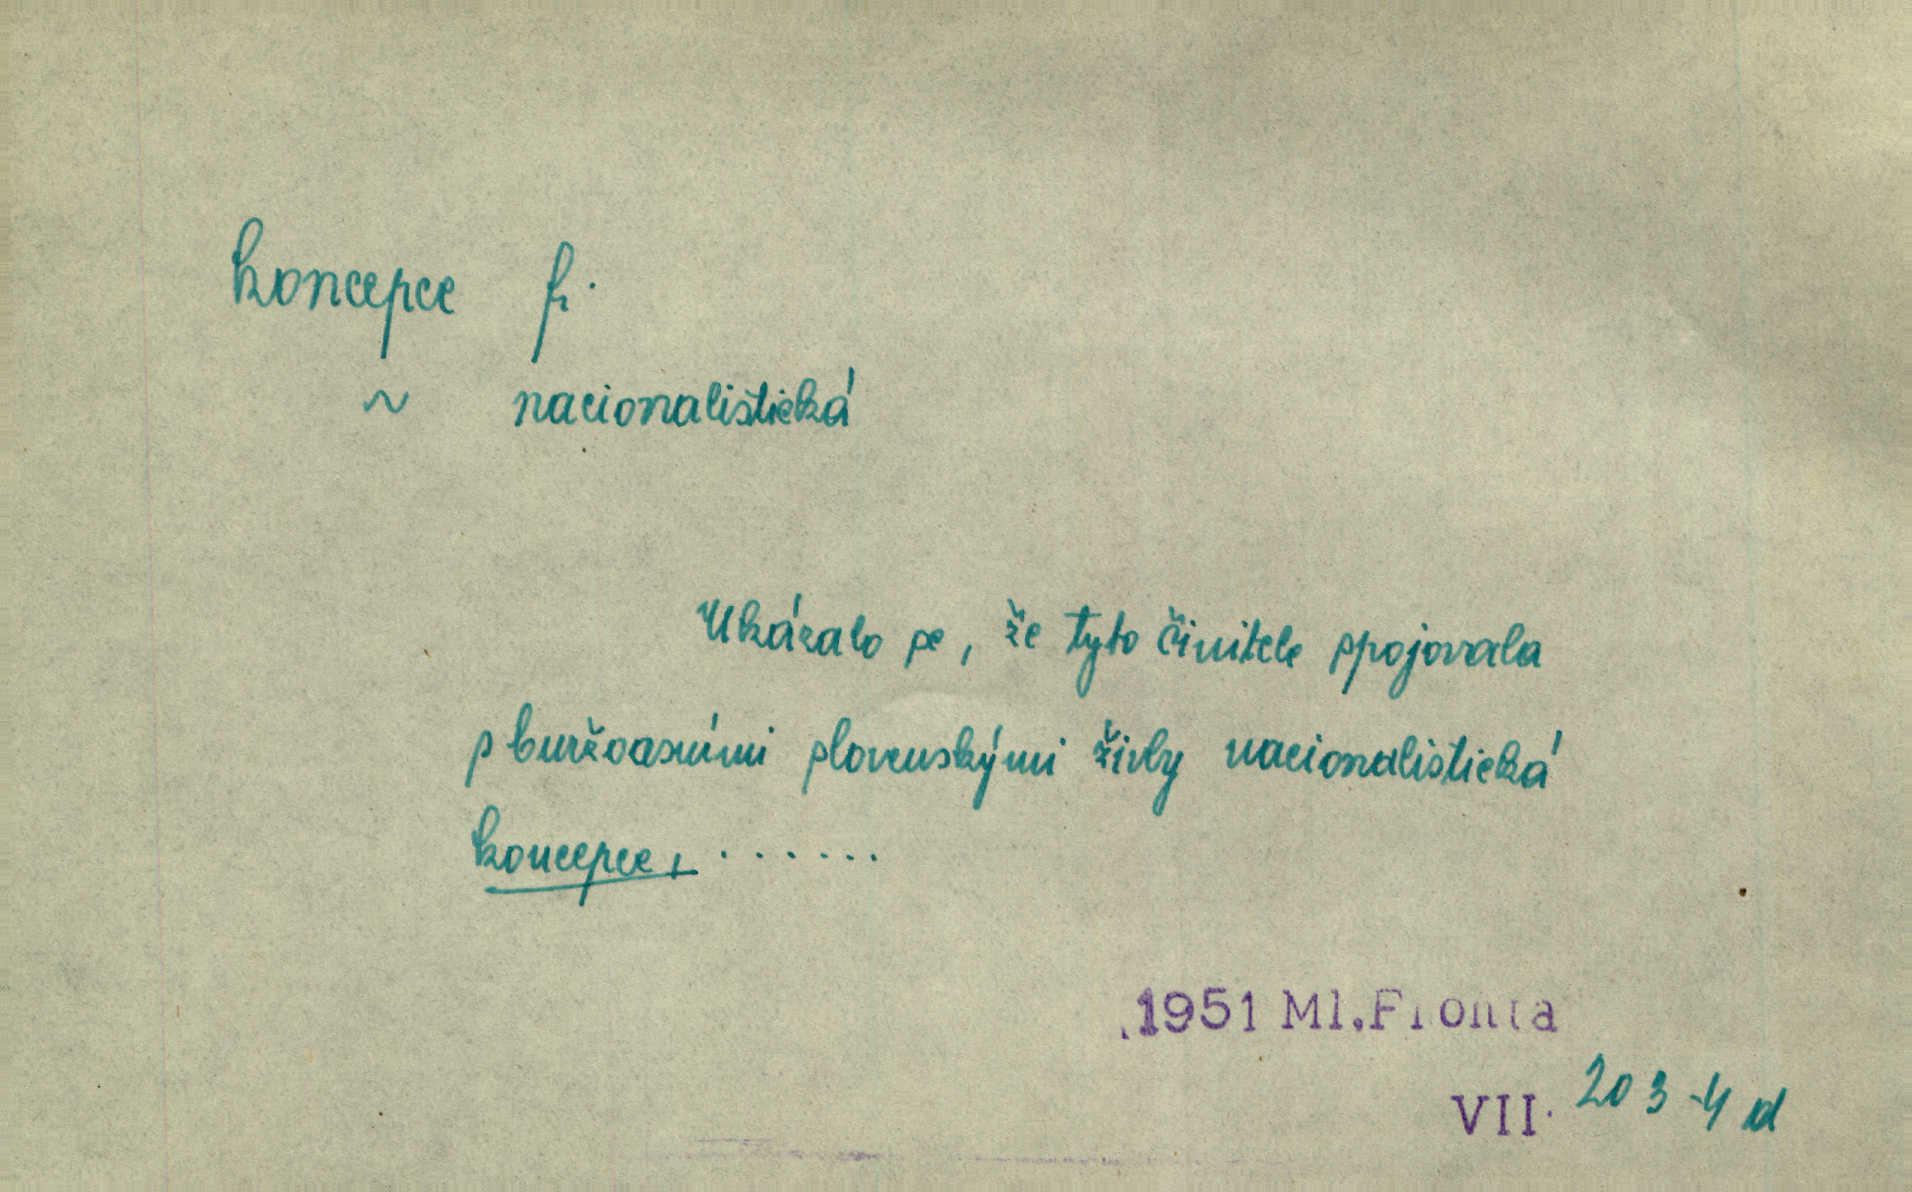 koncepce f.
~ nacionalistická
Ukázalo se, že tyto činitele spojovala
s buržoasními slovenskými živly nacionalistická
koncepce, .......
1951 Ml. Fronta
VII. 203-4d